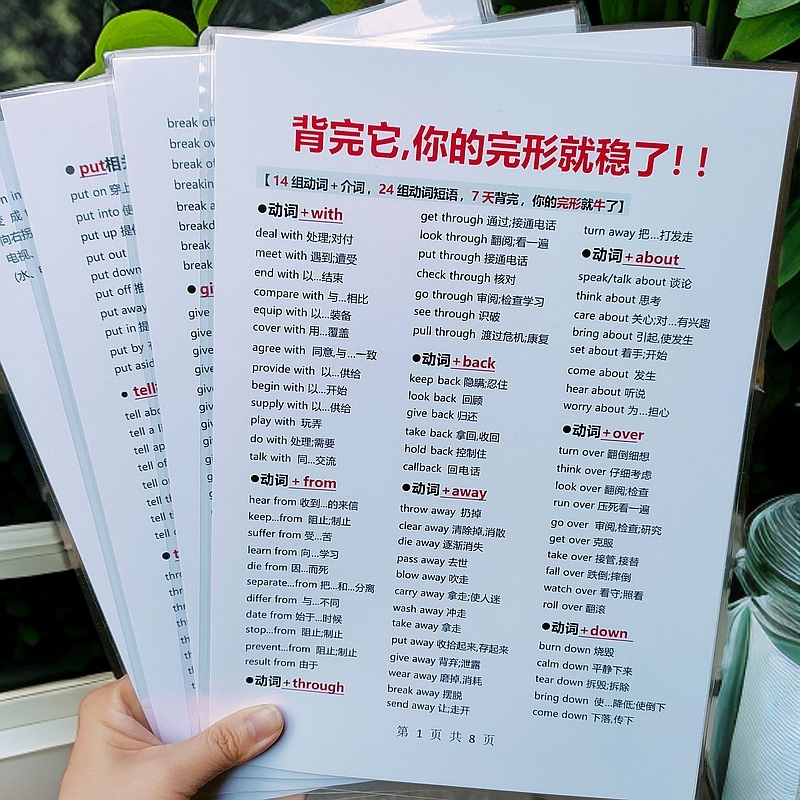 背完它,你的完形就稳了!!
【14组动词+介词,24组动词短语,7天背完,你的完形就牛了】
●动词+with
deal with 处理;对付
meet with 遇到;遭受
end with 以...结束
compare with 与...相比
equip with 以...装备
cover with 用...覆盖
agree with 同意,与...一致
provide with 以...供给
begin with 以...开始
supply with 以...供给
play with 玩弄
do with 处理;需要
talk with 同...交流
●动词+from
hear from 收到...的来信
keep...from 阻止;制止
suffer from 受...苦
learn from 向...学习
die from 因...而死
separate...from 把...和...分离
differ from 与...不同
date from 始于...时候
stop...from 阻止;制止
prevent...from 阻止;制止
result from 由于
●动词+through
get through 通过;接通电话
look through 翻阅;看一遍
put through 接通电话
check through 核对
go through 审阅;检查学习
see through 识破
pull through 渡过危机;康复
●动词+back
keep back 隐瞒;忍住
look back 回顾
give back 归还
take back 拿回,收回
hold back 控制住
callback 回电话
●动词+away
throw away 扔掉
clear away 清除掉,消散
die away 逐渐消失
pass away 去世
blow away 吹走
carry away 拿走;使人迷
wash away 冲走
take away 拿走
put away 收拾起来,存起来
give away 背弃;泄露
wear away 磨掉,消耗
break away 摆脱
send away 让;走开
turn away 把...打发走
●动词+about
speak/talk about 谈论
think about 思考
care about 关心;对...有兴趣
bring about 引起,使发生
set about 着手;开始
come about 发生
hear about 听说
worry about 为...担心
●动词+over
turn over 翻倒细想
think over 仔细考虑
look over 翻阅;检查
run over 压死看一遍
go over 审阅,检查;研究
get over 克服
take over 接管,接替
fall over 跌倒;摔倒
watch over 看守;照看
roll over 翻滚
●动词+down
burn down 烧毁
calm down 平静下来
tear down 拆毁;拆除
bring down 使...降低;使倒下
come down 下落,传下
第 1 页 共 8 页
break
break
break
breaking
break
break
break
break
give
give
give
give
give
give
give
●put相
put on 穿上
put into 使
put up 提
put out
put down
put off 推
put away
put in 提
put by
put asid
● tell
tell abo
tell a li
tell
tell of
tell
tell th
tell
向右拐
电视、